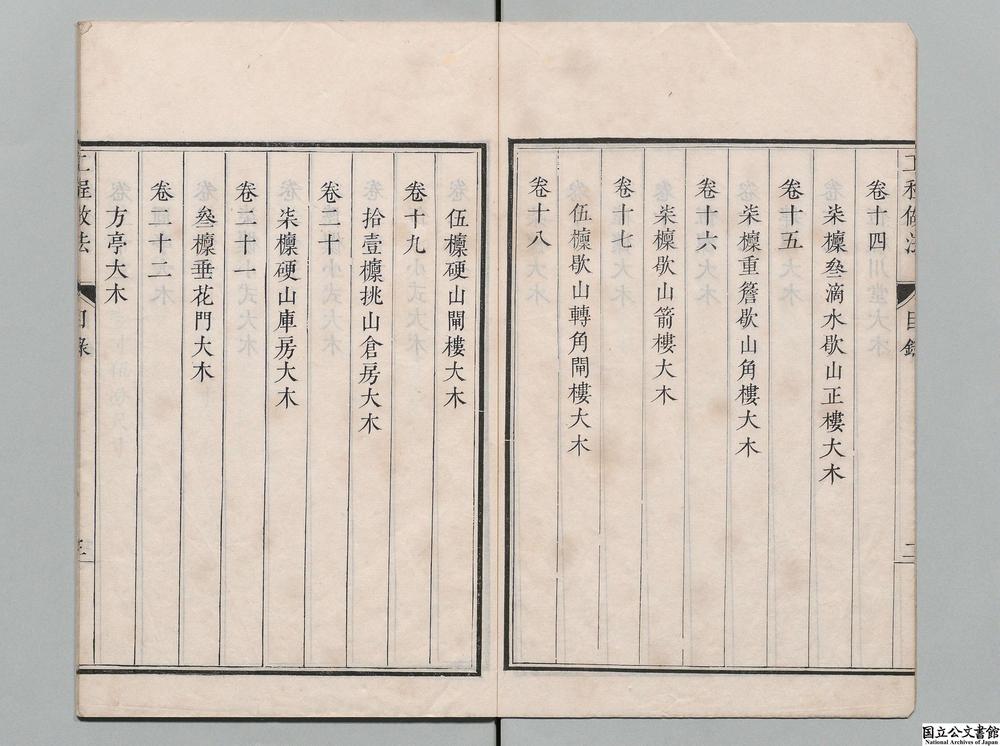 工程做法 目錄 二
卷十四
柒檁叄滴水歇山正樓大木
卷十五
柒檁重簷歇山角樓大木
卷十六
柒檁歇山箭樓大木
卷十七
伍檁歇山轉角閘樓大木
卷十八
伍檁硬山閘樓大木
卷十九
拾壹檁挑山倉房大木
卷二十
柒檁硬山庫房大木
卷二十一
叄檁垂花門大木
卷二十二
方亭大木
工程做法 目錄 三
国立公文書館
National Archives of Japan